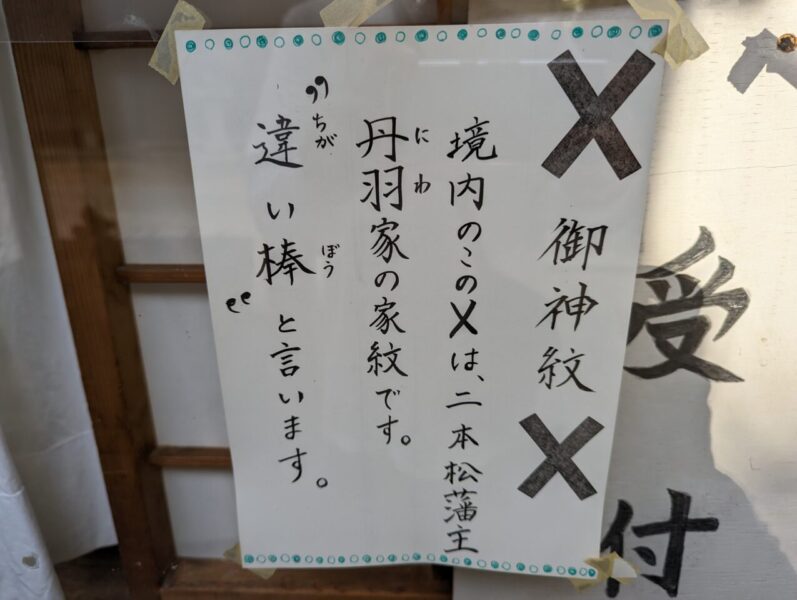 ✕ 御神紋 ✕
境内のこの✕は、二本松藩主
丹羽家の家紋です。
にわ
〝違い棒〞と言います。
ちが
ぼう
受付